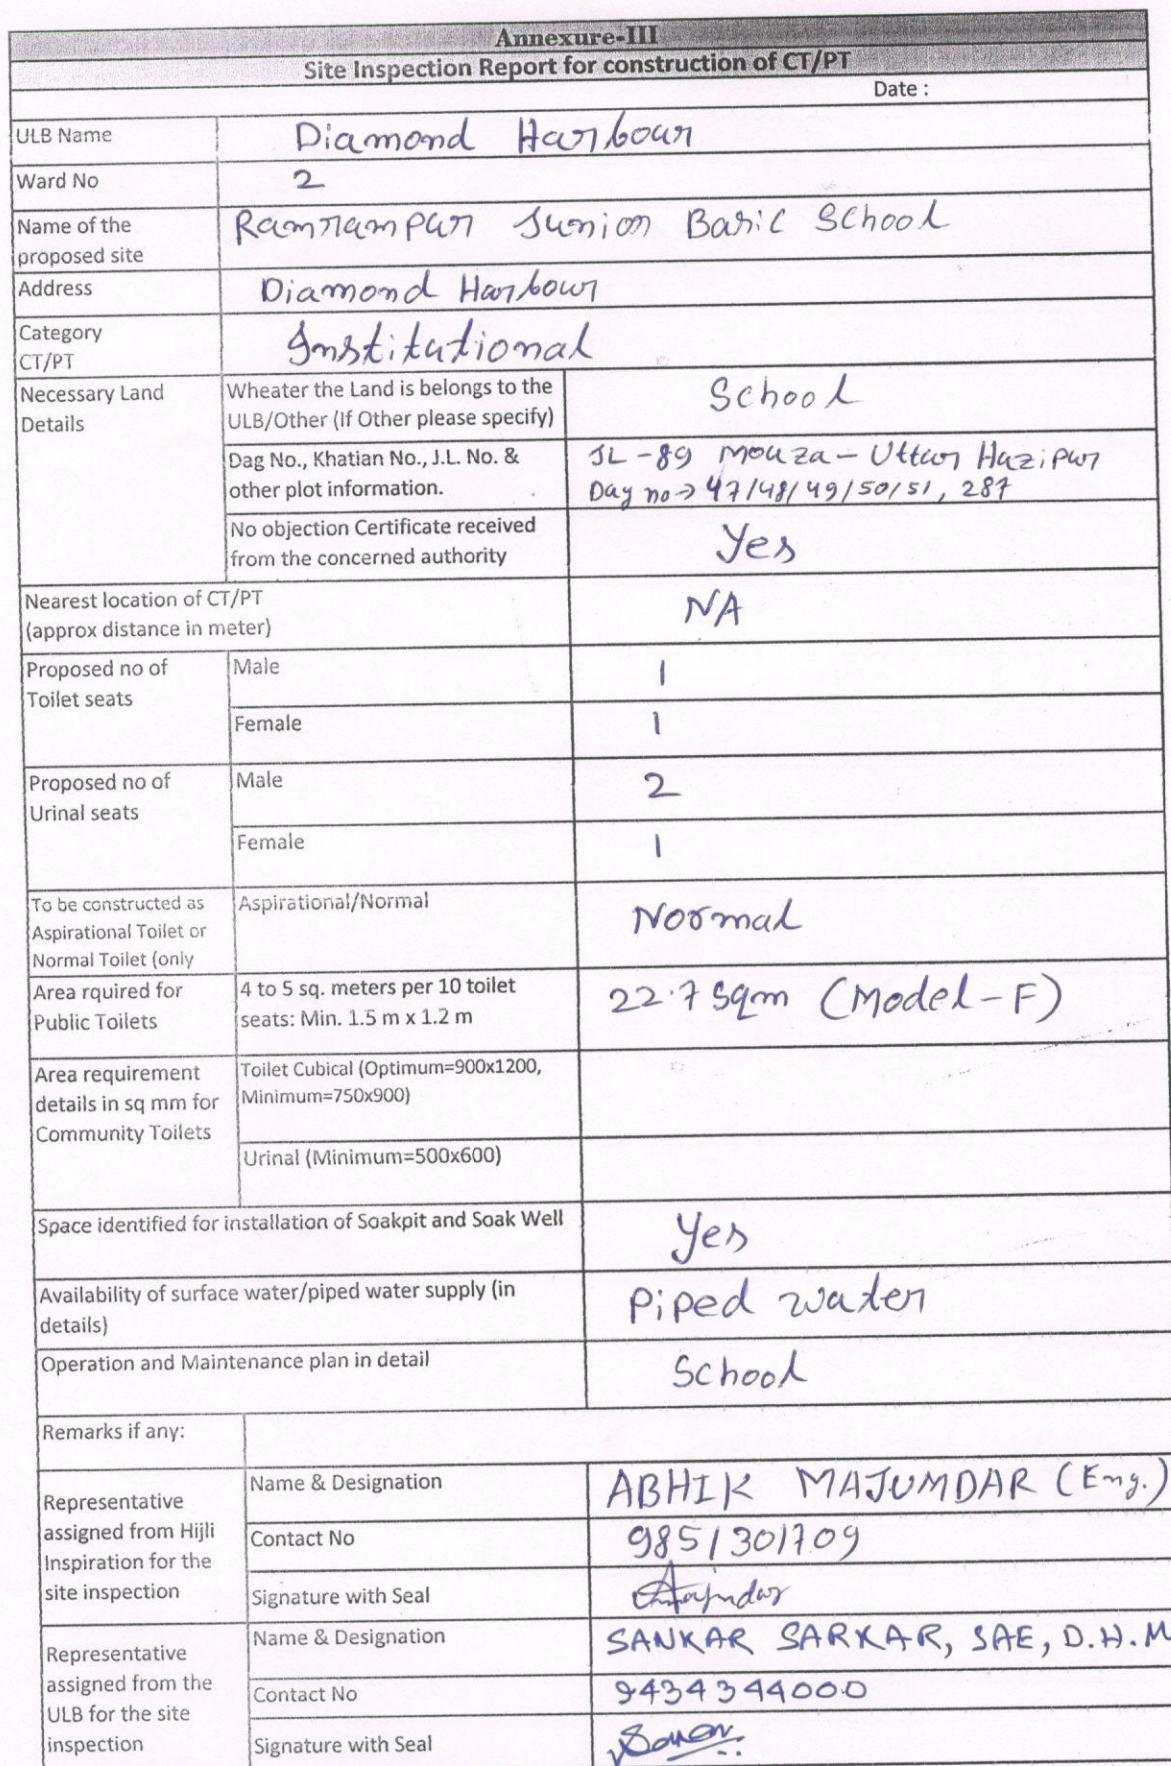 Annexure-III
Site Inspection Report for construction of CT/PT
Date :
ULB Name Diamond Harbour
Ward No 2
Name of the
proposed site Ramrampur Junior Basic School
Address Diamond Harbour
Category
CT/PT Institutional
Necessary Land
Details
Wheater the Land is belongs to the
ULB/Other (If Other please specify)
School
Dag No., Khatian No., J.L. No. &
other plot information.
JL-89 Mouza- Uttar Hazipur
Dag no→ 47/48/49/50/51, 287
No objection Certificate received
from the concerned authority
Yes
Nearest location of CT/PT
(approx distance in meter)
NA
Proposed no of
Toilet seats
Male 1
Female 1
Proposed no of
Urinal seats
Male 2
Female 1
To be constructed as
Aspirational Toilet or
Normal Toilet (only
Aspirational/Normal Normal
Area rquired for
Public Toilets
4 to 5 sq. meters per 10 toilet
seats: Min. 1.5 m x 1.2 m
22.7 sqm (Model-F)
Area requirement
details in sq mm for
Community Toilets
Toilet Cubical (Optimum=900x1200,
Minimum=750x900)
Urinal (Minimum=500x600)
Space identified for installation of Soakpit and Soak Well Yes
Availability of surface water/piped water supply (in
details)
Piped water
Operation and Maintenance plan in detail School
Remarks if any:
Representative
assigned from Hijli
Inspiration for the
site inspection
Name & Designation ABHIK MAJUMDAR (Eng.)
Contact No 9851301709
Signature with Seal
Representative
assigned from the
ULB for the site
inspection
Name & Designation SANKAR SARKAR, SAE, D.H.M
Contact No 9434344000
Signature with Seal